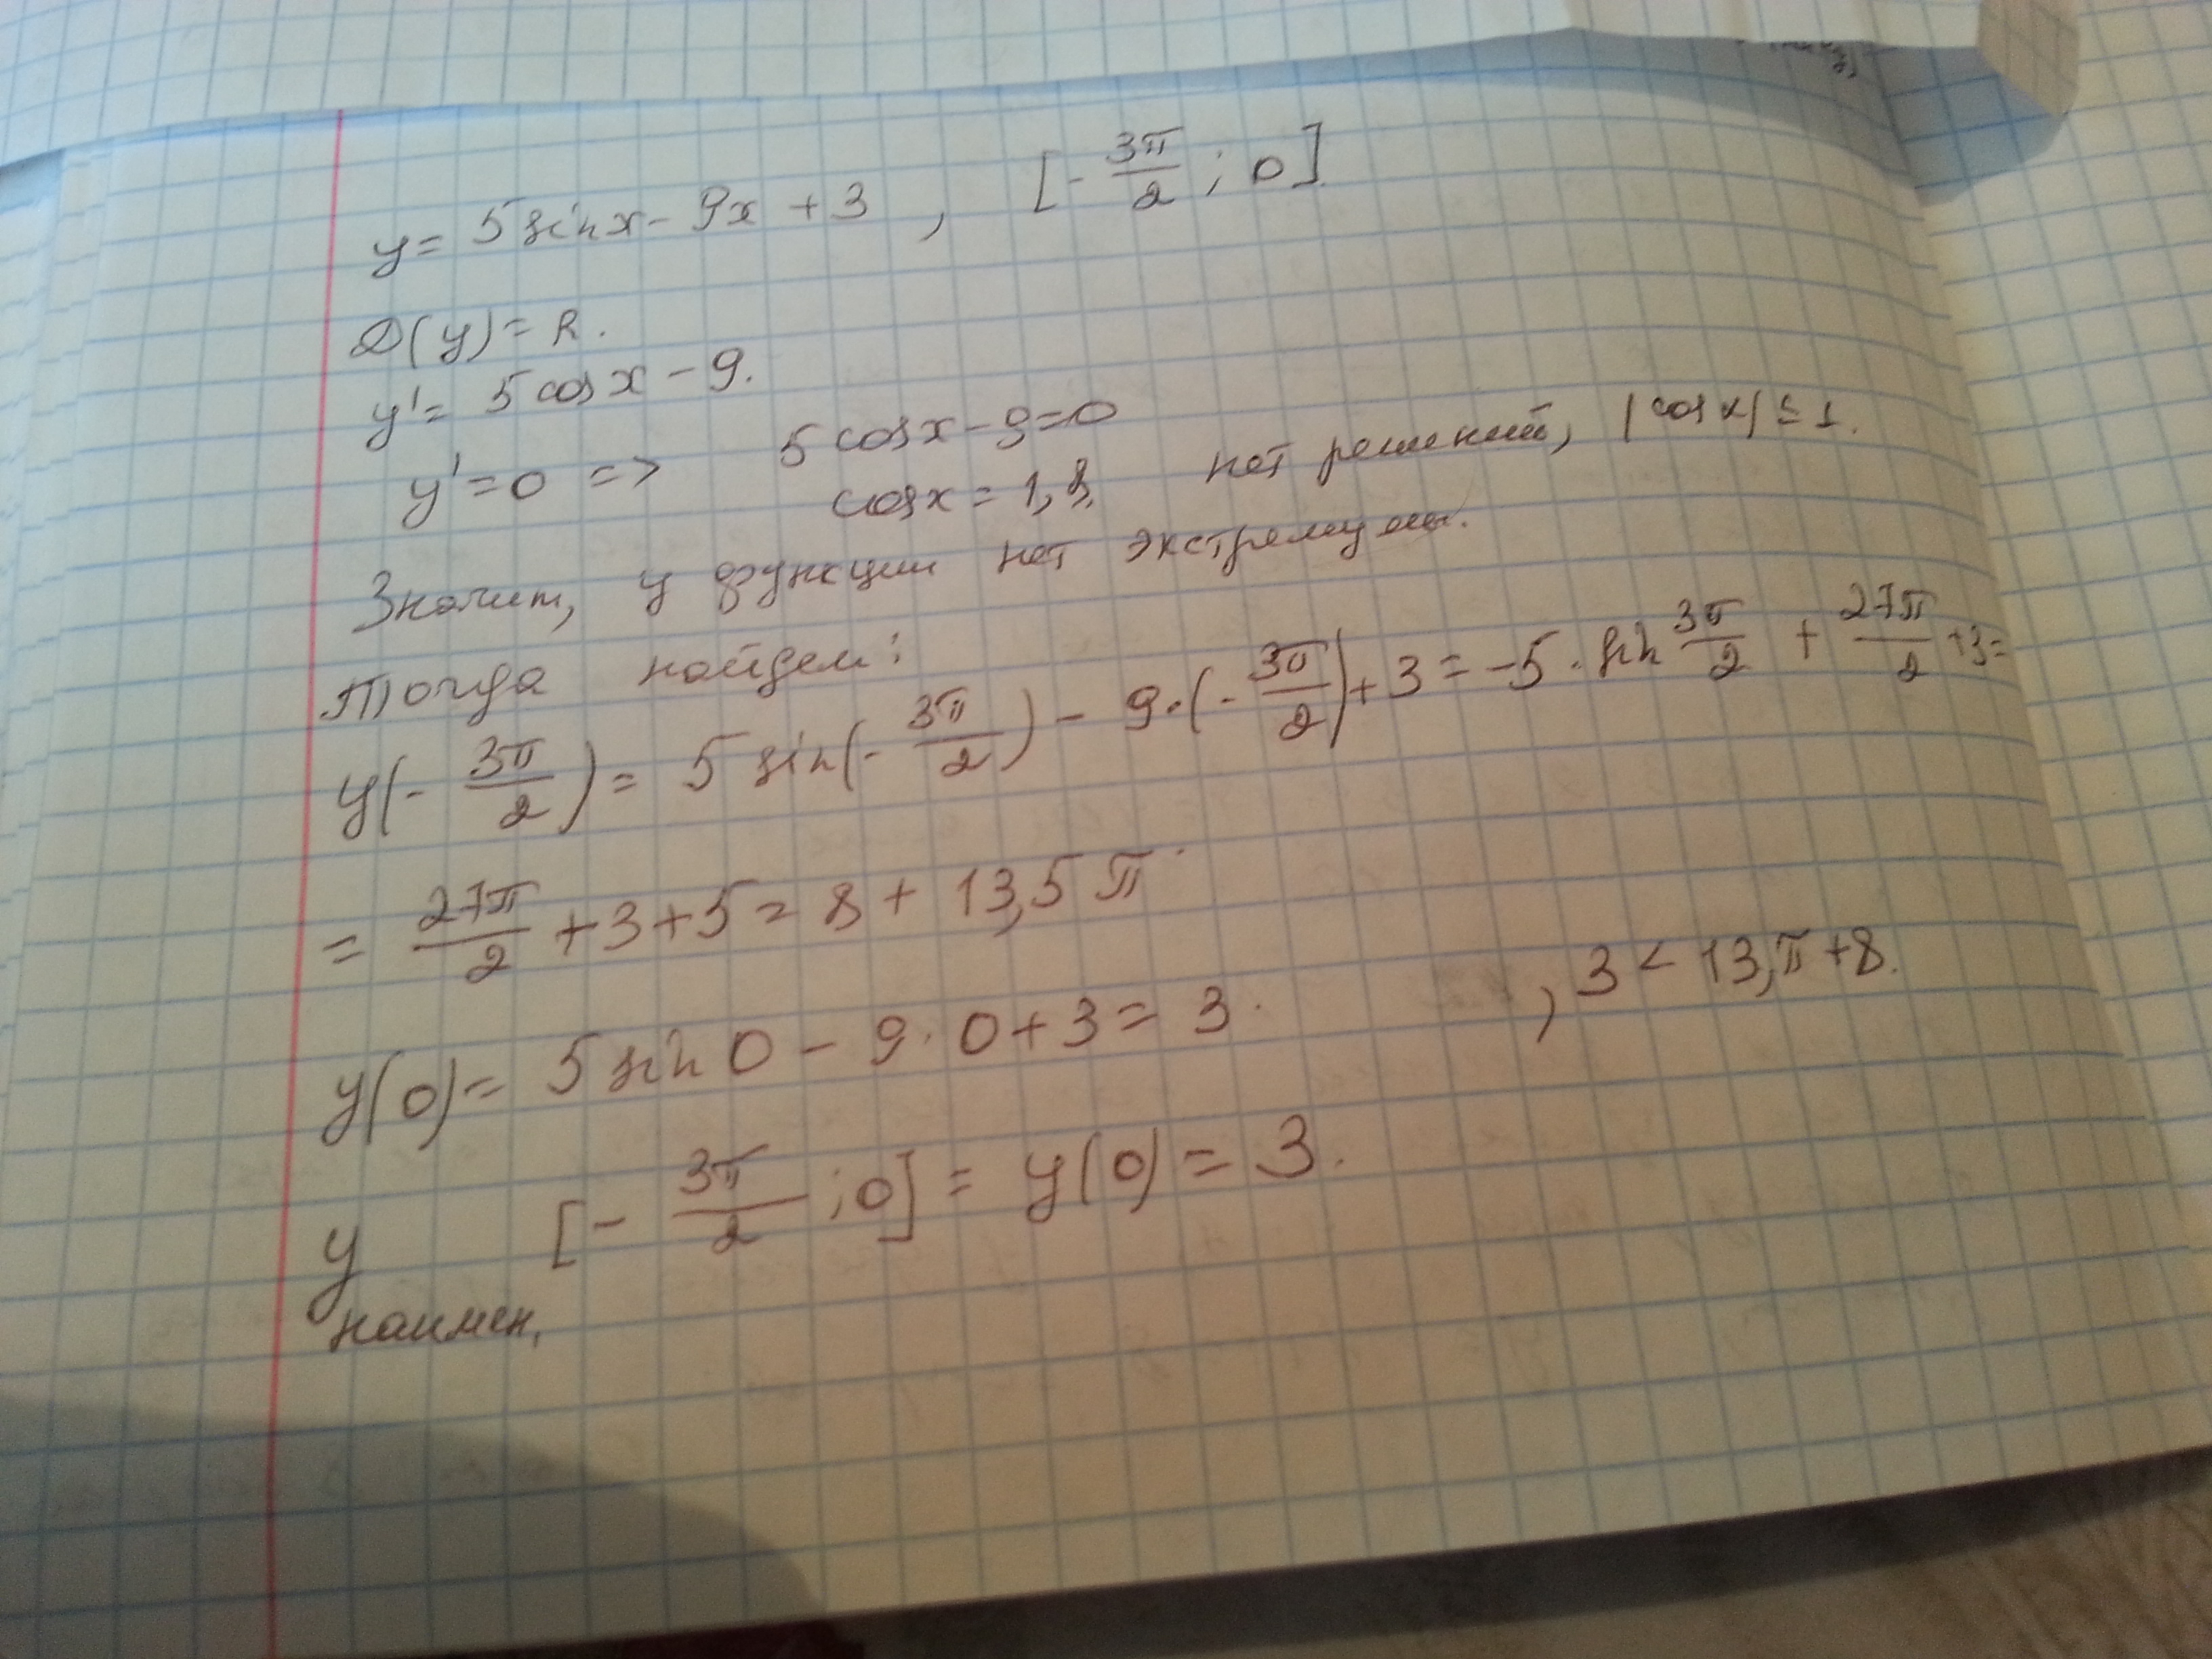 y = 5 sin x - 9x + 3 , [- 3π/2 ; 0]
D(y) = R.
y' = 5 cos x - 9.
y' = 0 => 5 cos x - 9 = 0
cos x = 1,8, нет решений, |cos x| ≤ 1.
Значит, у функции нет экстремума.
Тогда найдем:
y(- 3π/2) = 5 sin(- 3π/2) - 9·(- 3π/2) + 3 = -5 · sin 3π/2 + 27π/2 + 3 =
= 27π/2 + 3 + 5 = 8 + 13,5 π.
y(0) = 5 sin 0 - 9 · 0 + 3 = 3. , 3 < 13,π + 8.
y наимен. [- 3π/2 ; 0] = y(0) = 3.